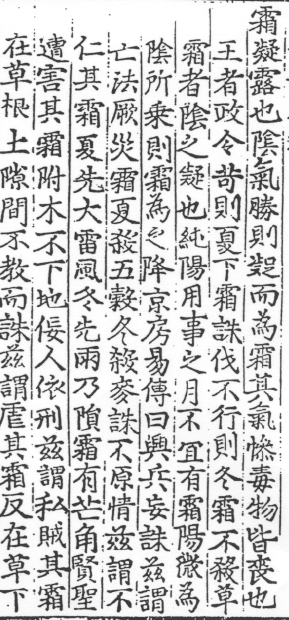 霜凝露也陰氣勝則凝而為霜其氣慘毒物皆喪也
王者政令苛則夏下霜誅伐不行則冬霜不殺草
霜者陰之凝也純陽用事之月不宜有霜陽微為
陰所乗則霜為之降京房易傳曰興兵妄誅茲謂
亡法厥災霜夏殺五穀冬殺麥誅不原情茲謂不
仁其霜夏先大雷風冬先雨乃隕霜有芒角賢聖
遭害其霜附木不下地佞人依刑茲謂私賊其霜
在草根土隙間不教而誅茲謂虐其霜反在草下